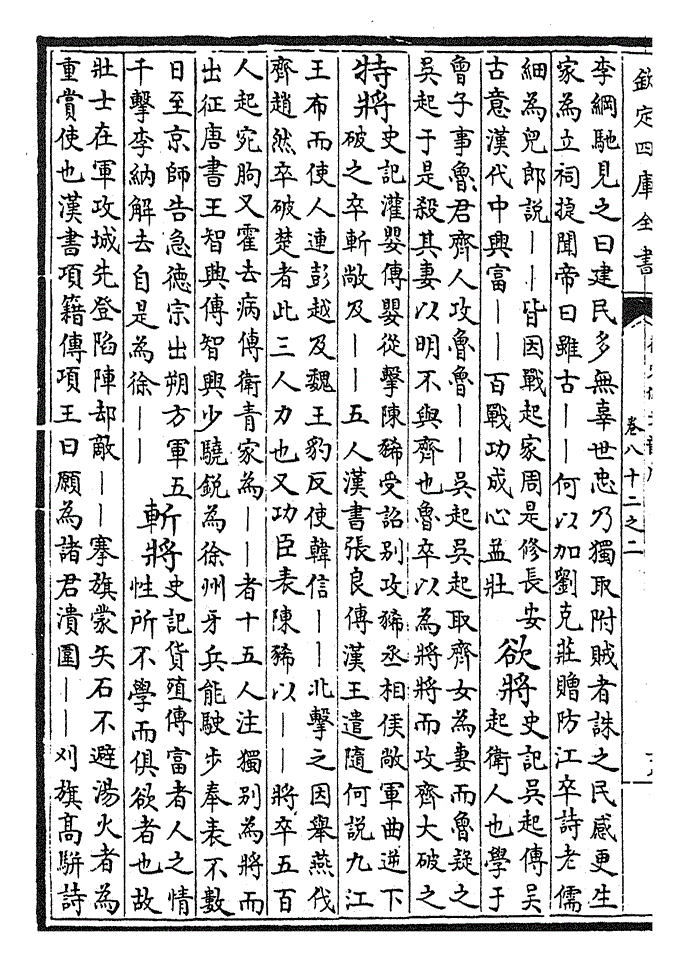 欽定四庫全書
卷八十二之二
李綱馳見之曰建民多無辜世忠乃獨取附賊者誅之民感更生
家為立祠捷聞帝曰雖古——何以加劉克莊贈防江卒詩老儒
細為兒郎說——皆因戰起家周是修長安
古意漢代中興富——百戰功成心益壯
欲將
史記吳起傳吳
起衛人也學于
曾子事魯君齊人攻魯魯——吳起吳起取齊女為妻而魯疑之
吳起于是殺其妻以明不與齊也魯卒以為將將而攻齊大破之
特將
史記灌嬰傳嬰從擊陳豨受詔別攻豨丞相侯敞軍曲逆下
破之卒斬敞及——五人漢書張良傳漢王遣隨何說九江
王布而使人連彭越及魏王豹反使韓信——北擊之因舉燕伐
齊趙然卒破楚者此三人力也又功臣表陳豨以——將卒五百
人起宛朐又霍去病傳衛青家為——者十五人注獨別為將而
出征唐書王智興傳智興少驍銳為徐州牙兵能駛步奉表不數
日至京師告急德宗出朔方軍五
千擊李納解去自是為徐——
斬將
史記貨殖傳富者人之情
性所不學而俱欲者也故
壯士在軍攻城先登陷陣却敵——搴旗蒙矢石不避湯火者為
重賞使也漢書項籍傳項王曰願為諸君潰圍——刈旗高駢詩